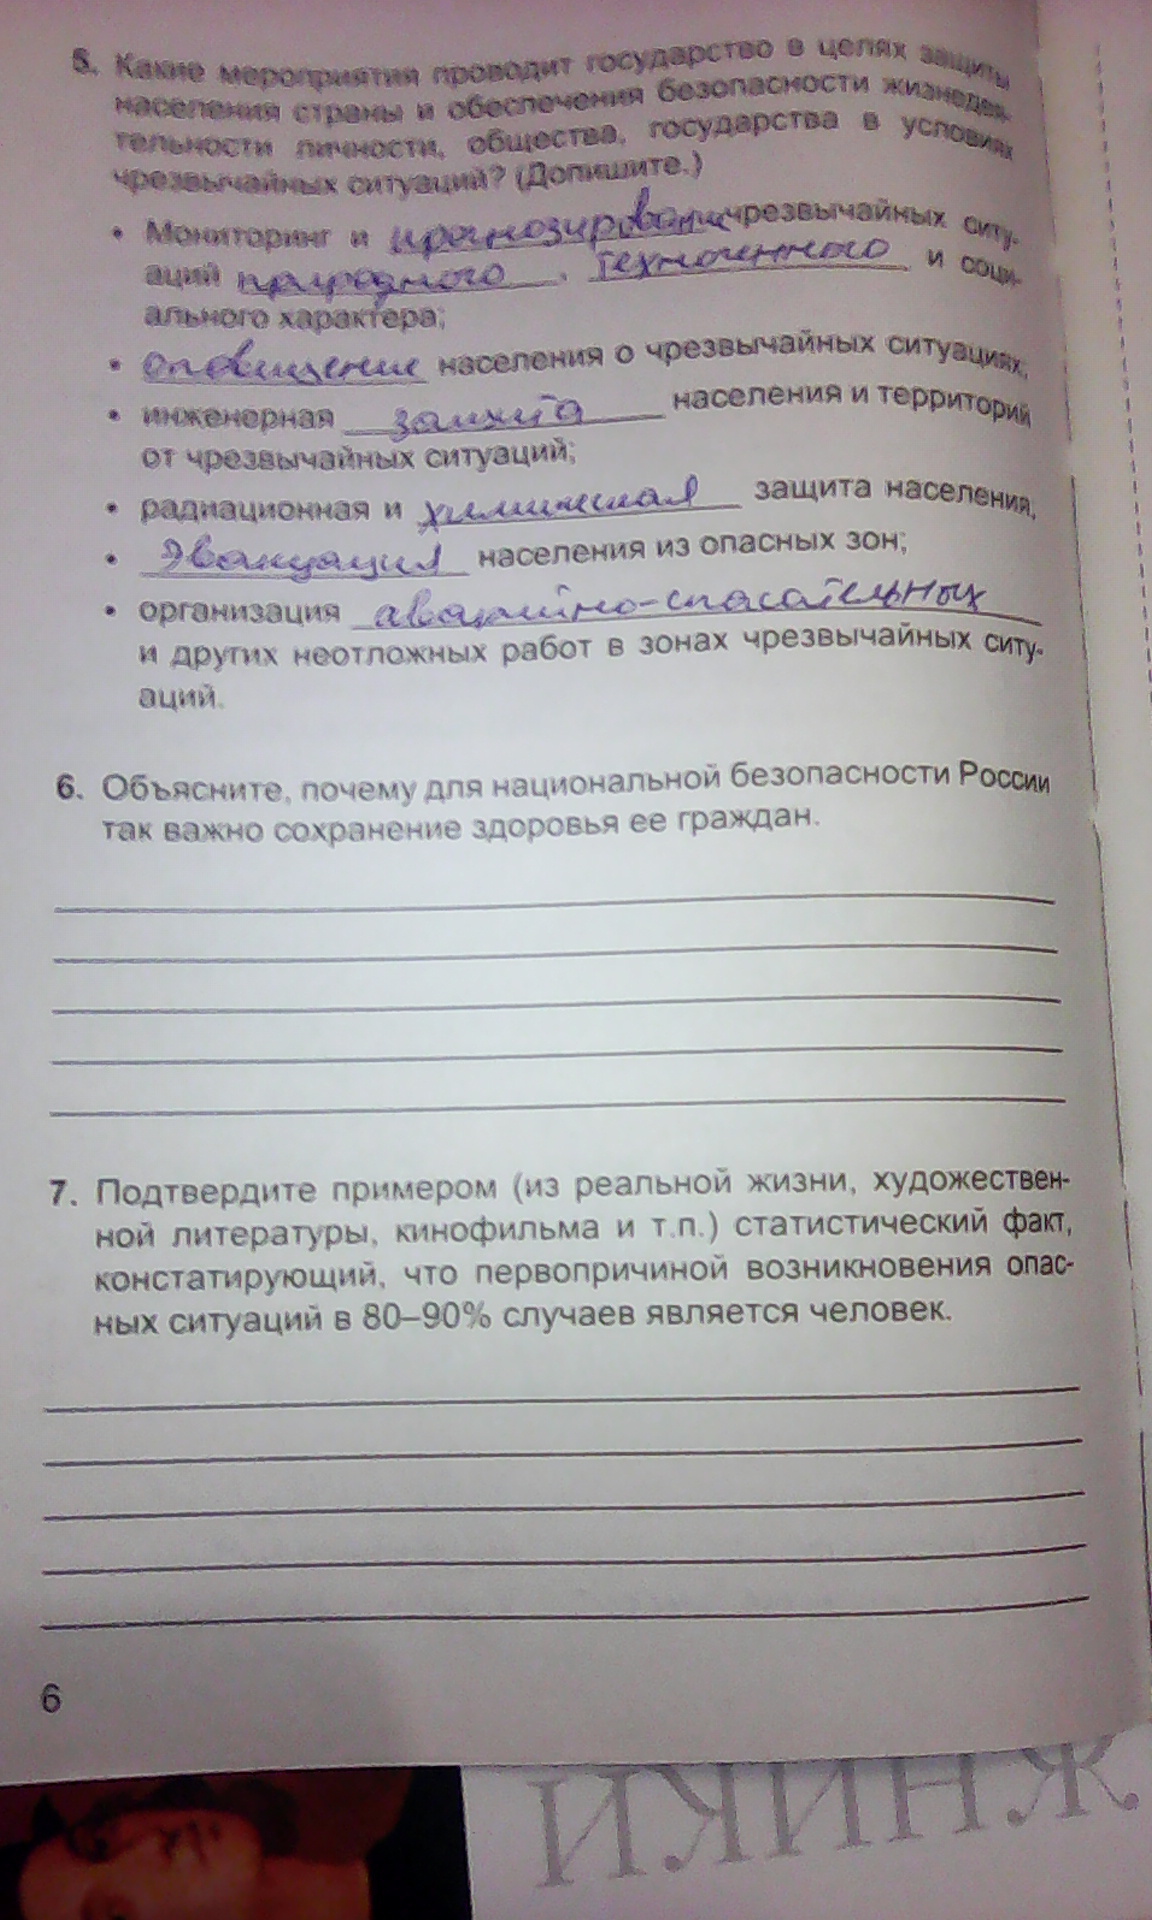 5. Какие мероприятия проводит государство в целях защиты
населения страны и обеспечения безопасности жизнедея-
тельности личности, общества, государства в условиях
чрезвычайных ситуаций? (Допишите.)
• Мониторинг и прогнозирование чрезвычайных ситу-
аций природного, техногенного и соци-
ального характера;
• оповещение населения о чрезвычайных ситуациях;
• инженерная защита населения и территорий
от чрезвычайных ситуаций;
• радиационная и химическая защита населения,
• эвакуация населения из опасных зон;
• организация аварийно-спасательных
и других неотложных работ в зонах чрезвычайных ситу-
аций.
6. Объясните, почему для национальной безопасности России
так важно сохранение здоровья ее граждан.
7. Подтвердите примером (из реальной жизни, художествен-
ной литературы, кинофильма и т.п.) статистический факт,
констатирующий, что первопричиной возникновения опас-
ных ситуаций в 80–90% случаев является человек.
6